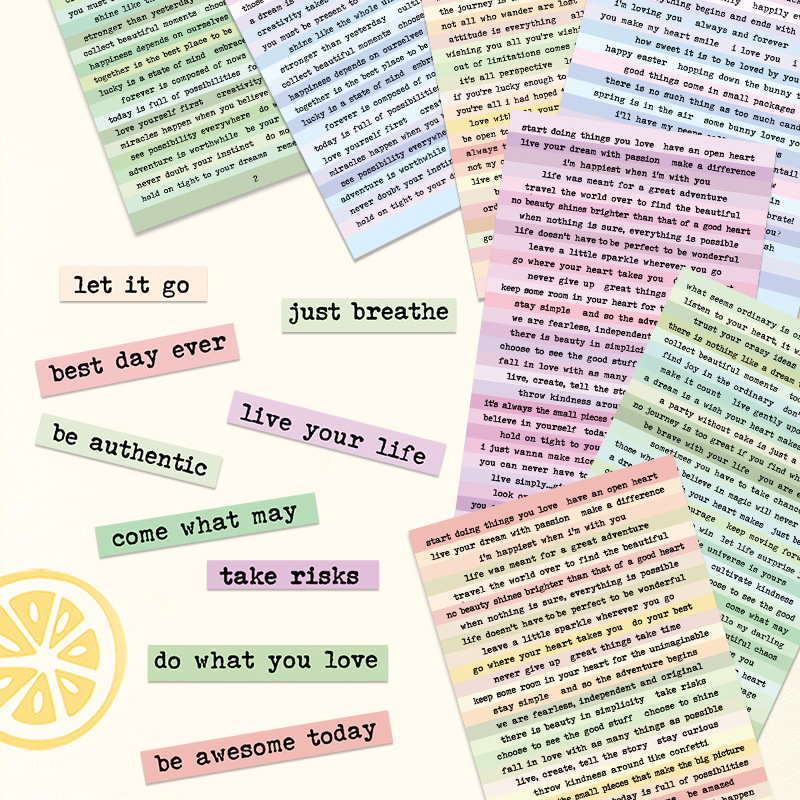 you must
shine like
stronger than yesterday
collect beautiful moments choos
happiness depends on ourselves
together is the best place to be
lucky is a state of mind embrac
forever is composed of nows
today is full of possibilities fo
love yourself first creativity
miracles happen when you believe
see possibility everywhere do w
adventure is worthwhile be your
never doubt your instinct do mo
hold on tight to your dreams reme
2
a dream is
creativity takes
you must be present to
shine like the whole univer
stronger than yesterday culti
collect beautiful moments choos
happiness depends on ourselves
together is the best place to be
lucky is a state of mind embrac
forever is composed of no
today is full of possibilities
love yourself first crea
miracles happen when you
see possibility everywhe
adventure is worthwhile
never doubt your instinc
hold on tight to your d
the journey is
not all who wander are lost
attitude is everything
wishing you all you're wish
out of limitations comes
it's all perspective
if you're lucky enough to
you're all i had hoped
love with all your
be open to
always
not my
live ev
everything begins and ends with
i'm loving you always and forever
you make my heart smile i love you i
how sweet it is to be loved by you
happy easter hopping down the bunny t
good things come in small packages
there is no such thing as too much cand
spring is in the air some bunny loves yo
i'll have my peeps
start doing things you love have an open heart
live your dream with passion make a difference
i'm happiest when i'm with you
life was meant for a great adventure
travel the world over to find the beautiful
no beauty shines brighter than that of a good heart
when nothing is sure, everything is possible
life doesn't have to be perfect to be wonderful
leave a little sparkle wherever you go
go where your heart takes you d
never give up great things
keep some room in your heart for t
stay simple and so the adve
we are fearless, independent
there is beauty in simplici
choose to see the good stuff
fall in love with as many
live, create, tell the sto
throw kindness arou
it's always the small pieces
believe in yourself toda
hold on tight to you
i just wanna make nice
you can never have to
live simply...
look o
you
what seems ordinary is
listen to your heart, it w
trust your crazy ideas
there is nothing like a dream
collect beautiful moments too
find joy in the ordinary don't
make it count live gently upo
a dream is a wish your heart makes
a party without cake is just a
no journey is too great if you find wh
be brave with your life you are e
sometimes you have to take chanc
those who believe in magic will never
a dre your heart makes just be
urage keep moving forw
win let life surprise
e universe is yours
cultivate kindness
oose to see the good
come what may
llo my darling
utiful chaos
let it go
just breathe
best day ever
live your life
be authentic
come what may
take risks
do what you love
be awesome today
start doing things you love have an open heart
live your dream with passion make a difference
i'm happiest when i'm with you
life was meant for a great adventure
travel the world over to find the beautiful
no beauty shines brighter than that of a good heart
when nothing is sure, everything is possible
life doesn't have to be perfect to be wonderful
leave a little sparkle wherever you go
go where your heart takes you do your best
never give up great things take time
keep some room in your heart for the unimaginable
stay simple and so the adventure begins
we are fearless, independent and original
there is beauty in simplicity take risks
choose to see the good stuff choose to shine
fall in love with as many things as possible
live, create, tell the story stay curious
throw kindness around like confetti
small pieces that make the big picture
today is full of possiblities
be amazed
happen